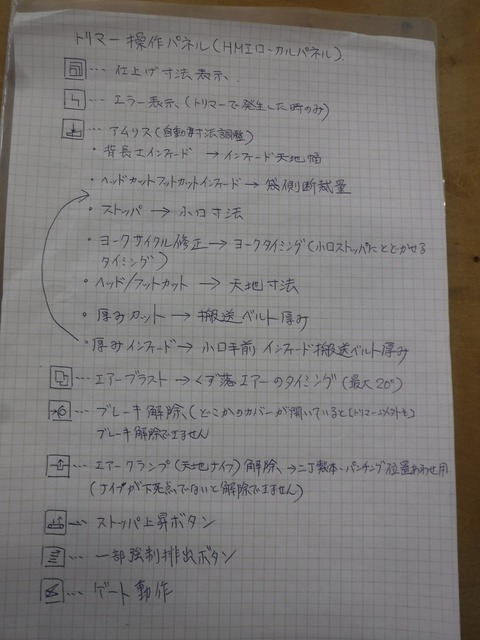 トリマー操作パネル(HMIローカルパネル)
…仕上げ寸法表示、
…エラー表示、(トリマーで発生した時のみ)
…アムリス(自動寸法調整)
・背長さインフィード → インフィード天地幅
・ヘッドカットフットカットインフィード→ 袋側断裁量
・ストッパ → 小口寸法
・ヨークサイクル修正→ ヨークタイミング(小口ストッパにとどかせる
タイミング)
・ヘッド/フットカット → 天地寸法
・厚みカット → 搬送ベルト厚み
・厚みインフィード→ 小口手前 インフィード搬送ベルト厚み
…エアーブラスト→くず落エアーのタイミング(最大20°)
…ブレーキ解除、(どこかのカバーが開いていると(トリマー以外も)
ブレーキ解除できません
…エアークランプ(天地ナイフ)解除、→二丁製本・パンチング位置あわせ用
(ナイフが下死点でないと解除できません)
…ストッパ上昇ボタン
…一部強制排出ボタン
…ゲート動作